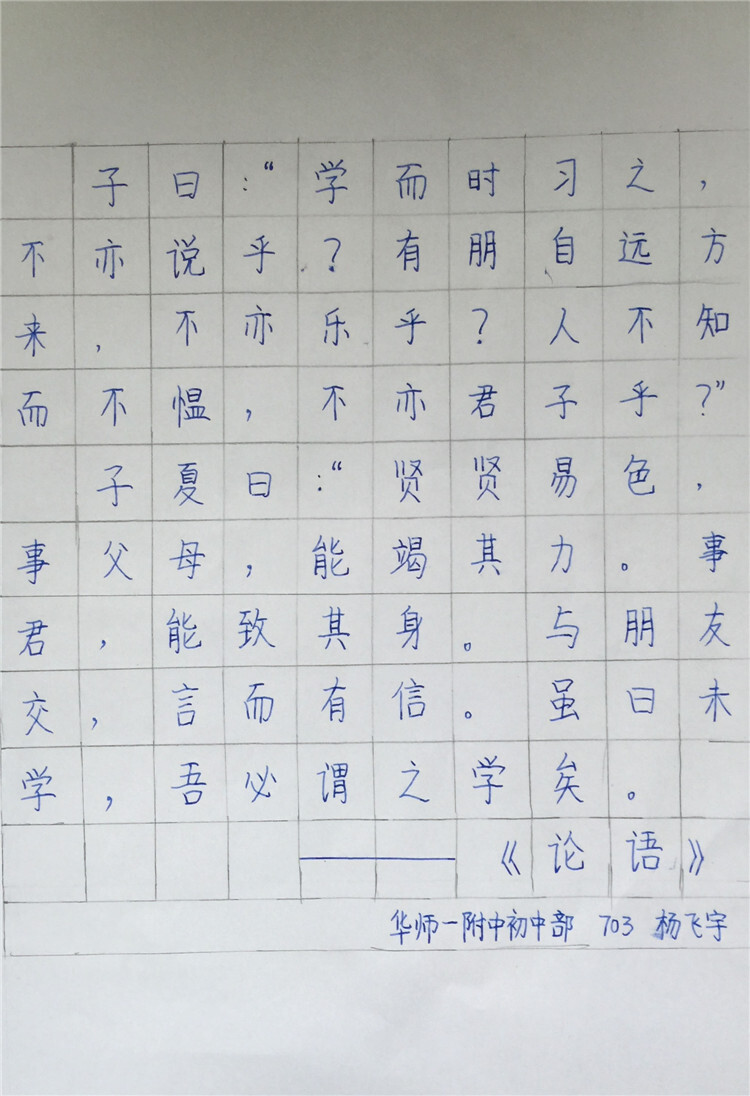 子曰:“学而时习之,
不亦说乎?有朋自远方
来,不亦乐乎?人不知
而不愠,不亦君子乎?”
子夏曰:“贤贤易色,
事父母,能竭其力。事
君,能致其身。与朋友
交,言而有信。虽曰未
学,吾必谓之学矣。
——《论语》
华师一附中初中部 703 杨飞宇